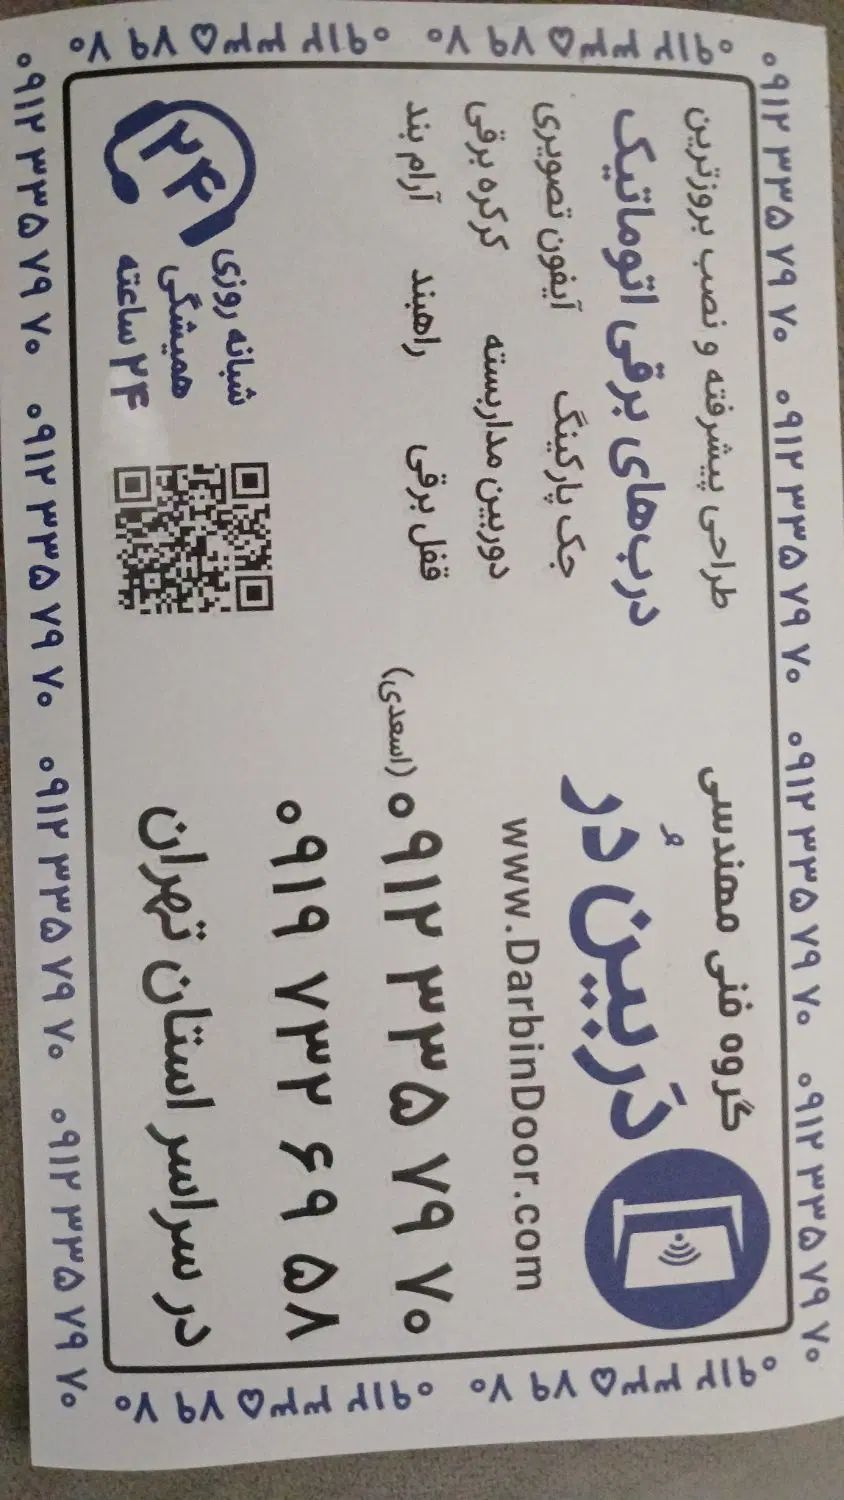 ۰۹۱۲ ۳۳۵ ۷۹ ۷۰ ۰۹۱۲ ۳۳۵ ۷۹ ۷۰ ۰۹۱۲ ۳۳۵ ۷۹ ۷۰ ۰۹۱۲ ۳۳۵ ۷۹ ۷۰
گروه فنی مهندسی
دَربین دُر
www.DarbinDoor.com
(اسعدی) ۰۹۱۲ ۳۳۵ ۷۹ ۷۰
۰۹۱۹ ۷۳۲ ۶۹ ۵۸
در سراسر استان تهران
طراحی پیشرفته و نصب بروزترین
درب‌های برقی اتوماتیک
جک پارکینگ آیفون تصویری
دوربین مداربسته کرکره برقی
قفل برقی راهبند آرام بند
۲۴
شبانه روزی
همیشگی
۲۴ ساعته
۰۹۱۲ ۳۳۵ ۷۹ ۷۰ ۰۹۱۲ ۳۳۵ ۷۹ ۷۰
۰۹۱۲ ۳۳۵ ۷۹ ۷۰ ۰۹۱۲ ۳۳۵ ۷۹ ۷۰
۰۹۱۲ ۳۳۵ ۷۹ ۷۰ ۰۹۱۲ ۳۳۵ ۷۹ ۷۰ ۰۹۱۲ ۳۳۵ ۷۹ ۷۰ ۰۹۱۲ ۳۳۵ ۷۹ ۷۰